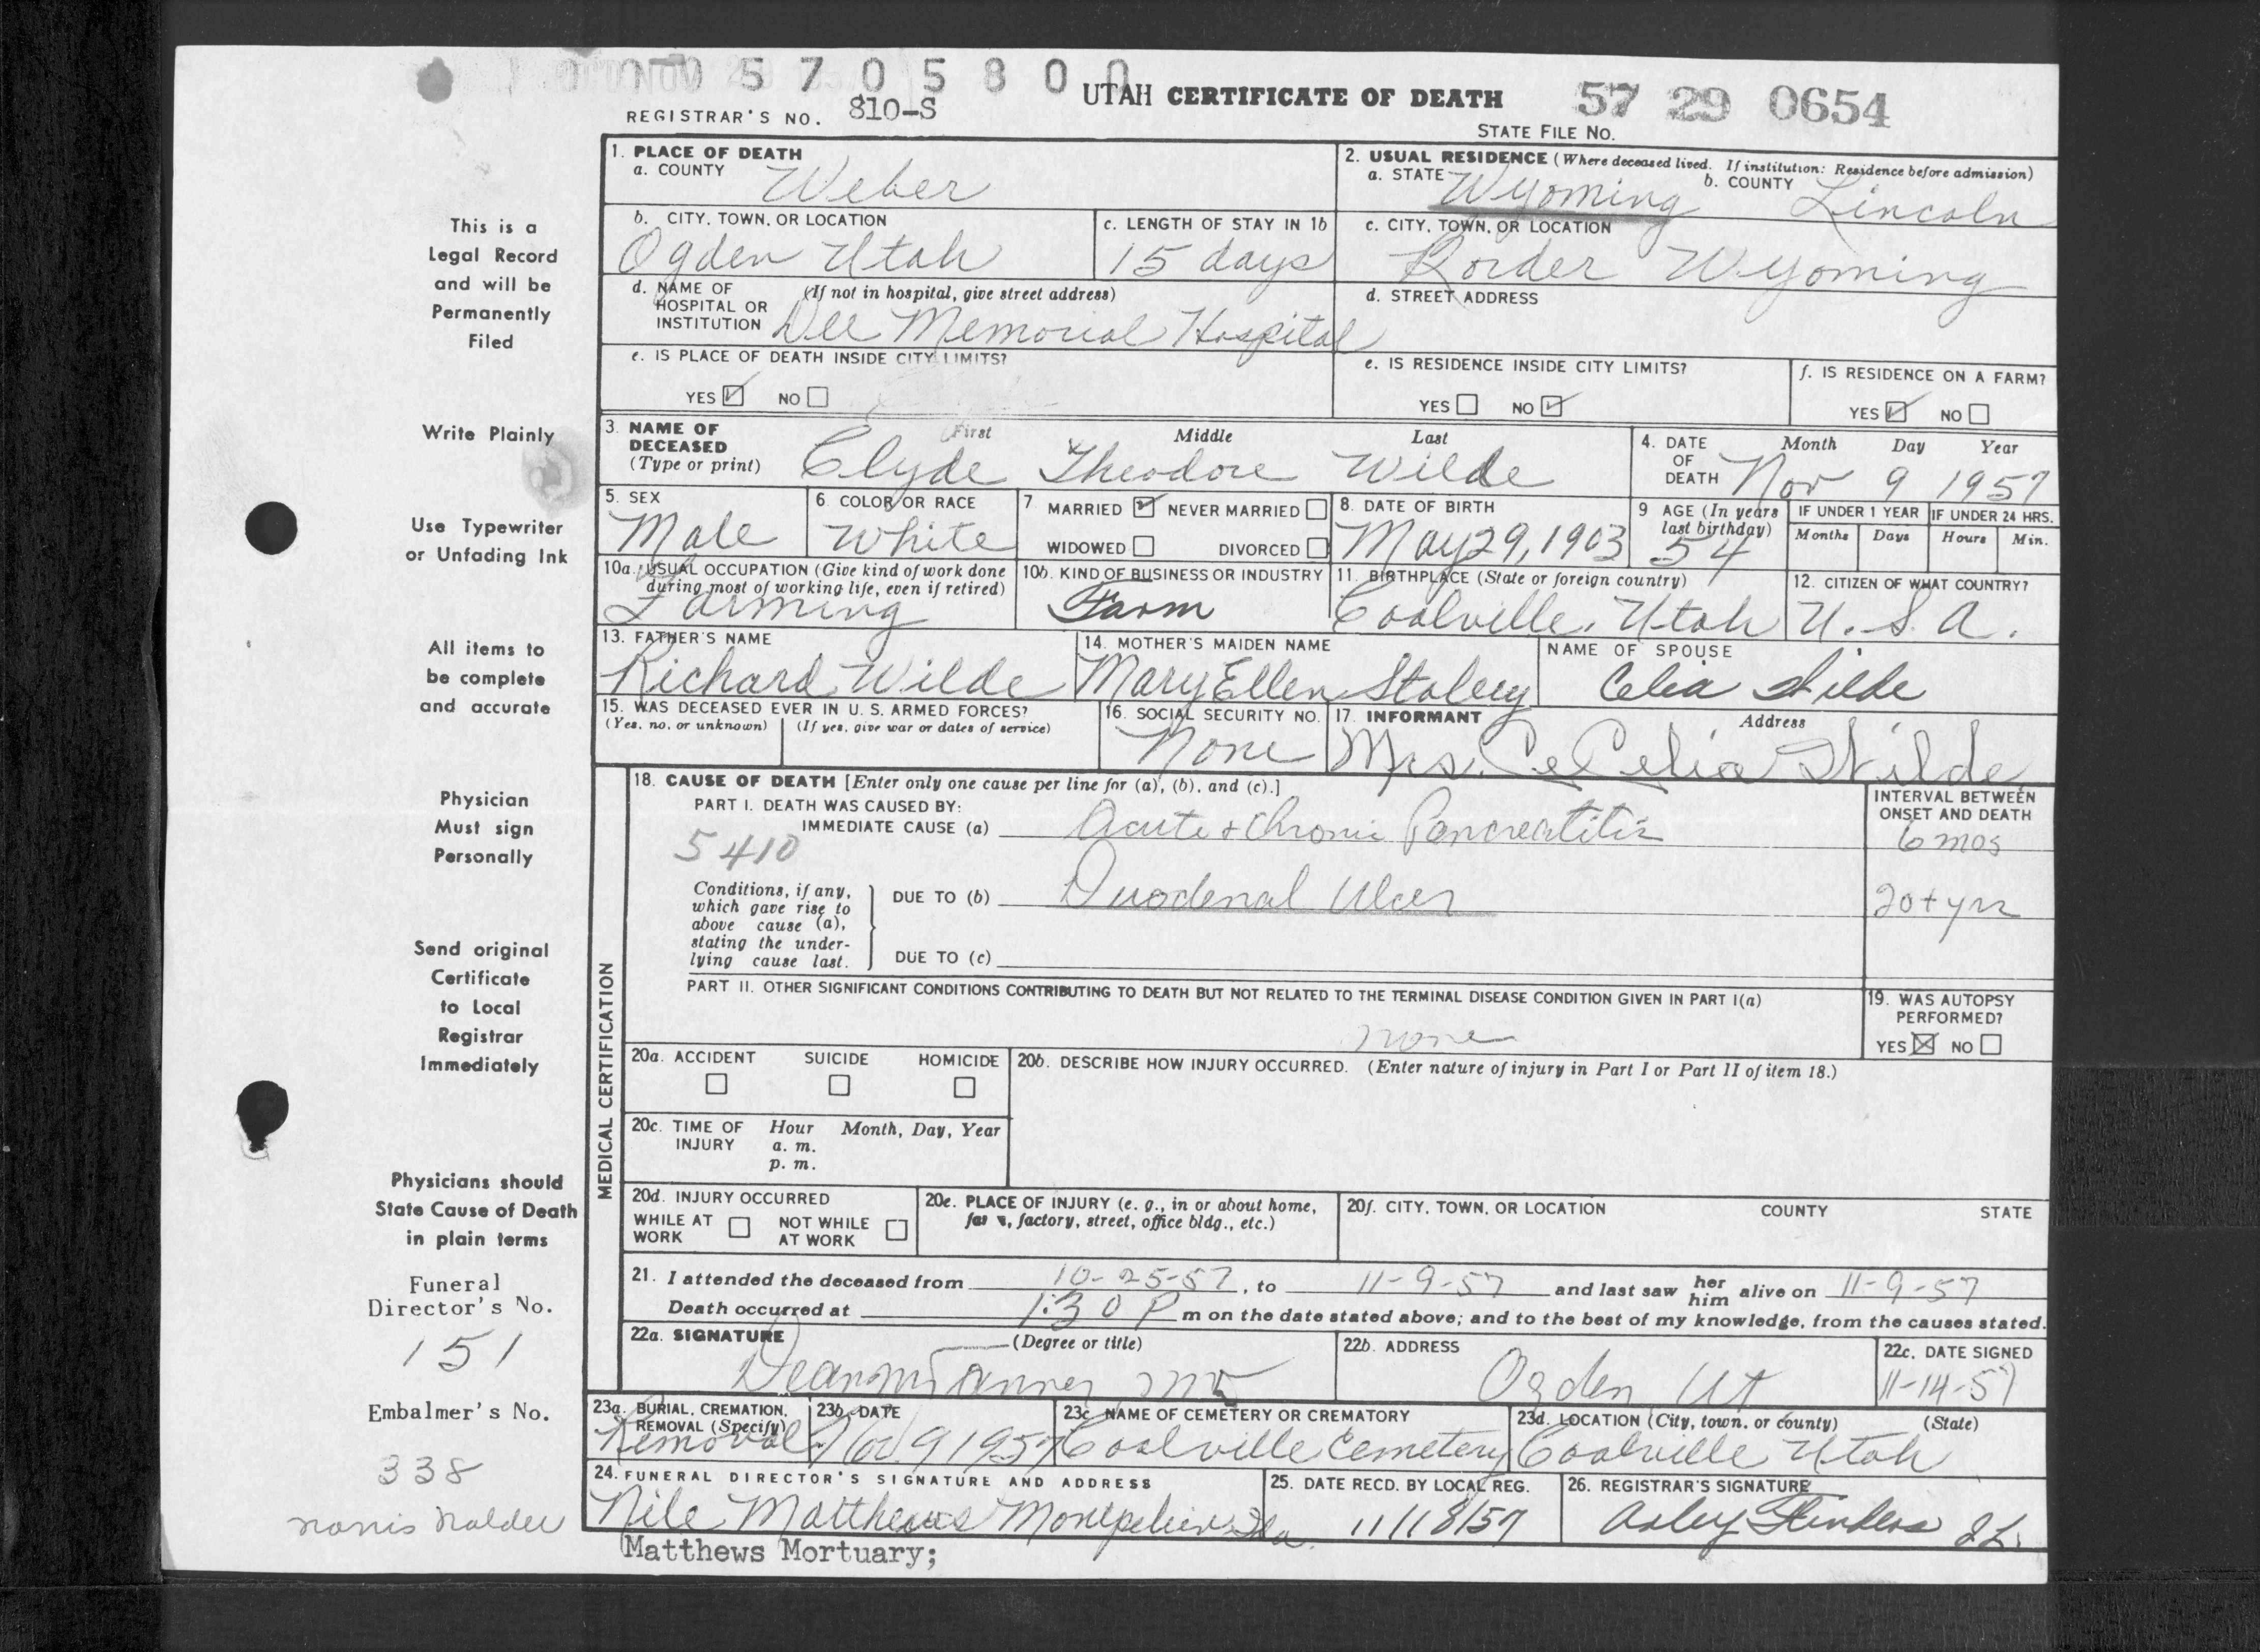 5 7 0 5 8 0 0
UTAH CERTIFICATE OF DEATH
57 29 0654
REGISTRAR'S NO. 810-S
STATE FILE NO.
1. PLACE OF DEATH
a. COUNTY Weber
2. USUAL RESIDENCE (Where deceased lived. If institution: Residence before admission)
a. STATE Wyoming b. COUNTY Lincoln
b. CITY, TOWN, OR LOCATION Ogden Utah
c. LENGTH OF STAY IN 1b 15 days
c. CITY, TOWN, OR LOCATION Border Wyoming
d. NAME OF HOSPITAL OR INSTITUTION (If not in hospital, give street address) Dee Memorial Hospital
d. STREET ADDRESS
e. IS PLACE OF DEATH INSIDE CITY LIMITS?
YES ☑ NO ☐
e. IS RESIDENCE INSIDE CITY LIMITS?
YES ☐ NO ☑
f. IS RESIDENCE ON A FARM?
YES ☑ NO ☐
3. NAME OF DECEASED (Type or print) First Middle Last
Clyde Theodore Wilde
4. DATE OF DEATH Month Day Year
Nov 9 1957
5. SEX Male
6. COLOR OR RACE White
7 MARRIED ☑ NEVER MARRIED ☐
WIDOWED ☐ DIVORCED ☐
8. DATE OF BIRTH May 29, 1903
9 AGE (In years last birthday) 54
IF UNDER 1 YEAR Months Days
IF UNDER 24 HRS. Hours Min.
10a. USUAL OCCUPATION (Give kind of work done during most of working life, even if retired) Farming
10b. KIND OF BUSINESS OR INDUSTRY Farm
11. BIRTHPLACE (State or foreign country) Coalville, Utah
12. CITIZEN OF WHAT COUNTRY? U.S.A.
13. FATHER'S NAME Richard Wilde
14. MOTHER'S MAIDEN NAME Mary Ellen Staley
NAME OF SPOUSE Celia Wilde
15. WAS DECEASED EVER IN U. S. ARMED FORCES?
(Yes, no, or unknown) (If yes, give war or dates of service)
16. SOCIAL SECURITY NO. None
17. INFORMANT Address
Mrs. CeCelia Wilde
MEDICAL CERTIFICATION
18. CAUSE OF DEATH [Enter only one cause per line for (a), (b), and (c).]
PART I. DEATH WAS CAUSED BY:
IMMEDIATE CAUSE (a) Acute + Chronic Pancreatitis
INTERVAL BETWEEN ONSET AND DEATH
6 mos
5410
Conditions, if any, which gave rise to above cause (a), stating the underlying cause last.
DUE TO (b) Duodenal Ulcer
20+ yrs
DUE TO (c)
PART II. OTHER SIGNIFICANT CONDITIONS CONTRIBUTING TO DEATH BUT NOT RELATED TO THE TERMINAL DISEASE CONDITION GIVEN IN PART I(a)
none
19. WAS AUTOPSY PERFORMED?
YES ☒ NO ☐
20a. ACCIDENT SUICIDE HOMICIDE
☐ ☐ ☐
20b. DESCRIBE HOW INJURY OCCURRED. (Enter nature of injury in Part I or Part II of item 18.)
20c. TIME OF INJURY Hour Month, Day, Year
a. m.
p. m.
20d. INJURY OCCURRED
WHILE AT WORK ☐ NOT WHILE AT WORK ☐
20e. PLACE OF INJURY (e. g., in or about home, farm, factory, street, office bldg., etc.)
20f. CITY, TOWN, OR LOCATION COUNTY STATE
21. I attended the deceased from 10-25-57, to 11-9-57 and last saw her him alive on 11-9-57
Death occurred at 1:30 P m on the date stated above; and to the best of my knowledge, from the causes stated.
22a. SIGNATURE (Degree or title)
Dean M Tanner MD
22b. ADDRESS Ogden Ut
22c. DATE SIGNED 11-14-57
23a. BURIAL, CREMATION, REMOVAL (Specify) Removal
23b. DATE Nov 9 1957
23c NAME OF CEMETERY OR CREMATORY Coalville Cemetery
23d. LOCATION (City, town, or county) (State)
Coalville Utah
24. FUNERAL DIRECTOR'S SIGNATURE AND ADDRESS
Nile Matthews Montpelier Ida.
25. DATE RECD. BY LOCAL REG. 11/18/57
26. REGISTRAR'S SIGNATURE
Matthews Mortuary;
This is a
Legal Record
and will be
Permanently
Filed
Write Plainly
Use Typewriter
or Unfading Ink
All items to
be complete
and accurate
Physician
Must sign
Personally
Send original
Certificate
to Local
Registrar
Immediately
Physicians should
State Cause of Death
in plain terms
Funeral
Director's No.
151
Embalmer's No.
338